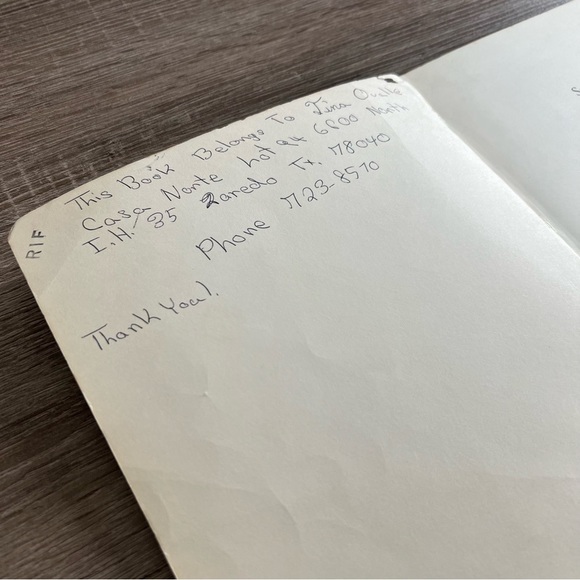 This Book Belongs To Tina Ovalle
Casa Norte Lot 94 6800 North
I.H. 35 Laredo Tx. 78040
Phone 723-8570
Thank You!
RIF